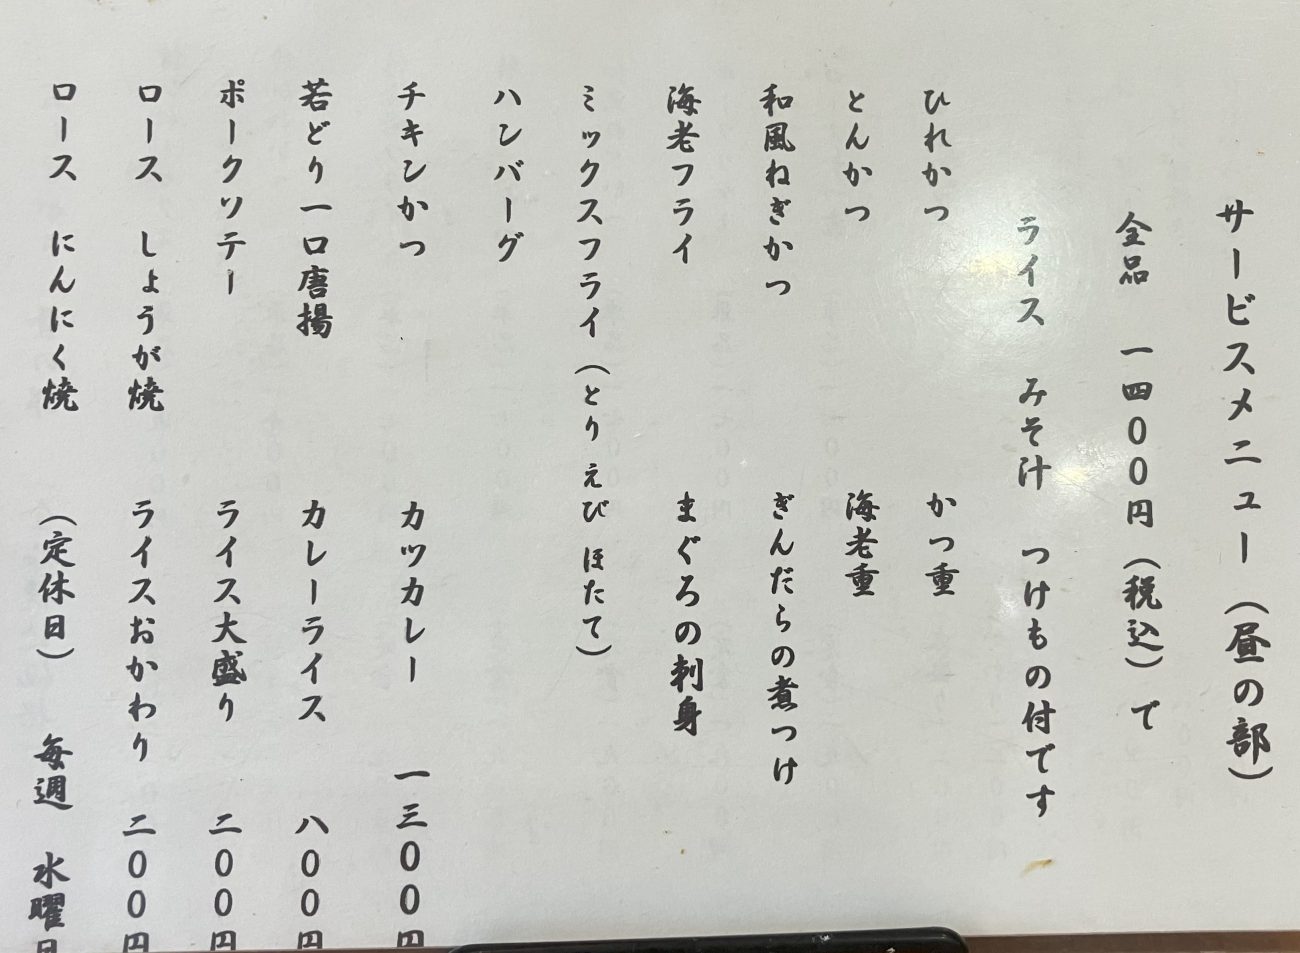 サービスメニュー（昼の部）
全品　一四００円（税込）で
ライス　みそ汁　つけもの付です
ひれかつ　かつ重
とんかつ　海老重
和風ねぎかつ　ぎんだらの煮つけ
海老フライ　まぐろの刺身
ミックスフライ（とり えび ほたて）
ハンバーグ
チキンかつ　カツカレー　一三００円
若どり一口唐揚　カレーライス　八００円
ポークソテー　ライス大盛り　二００円
ロース　しょうが焼　ライスおかわり　二００円
ロース　にんにく焼　（定休日）　毎週　水曜日